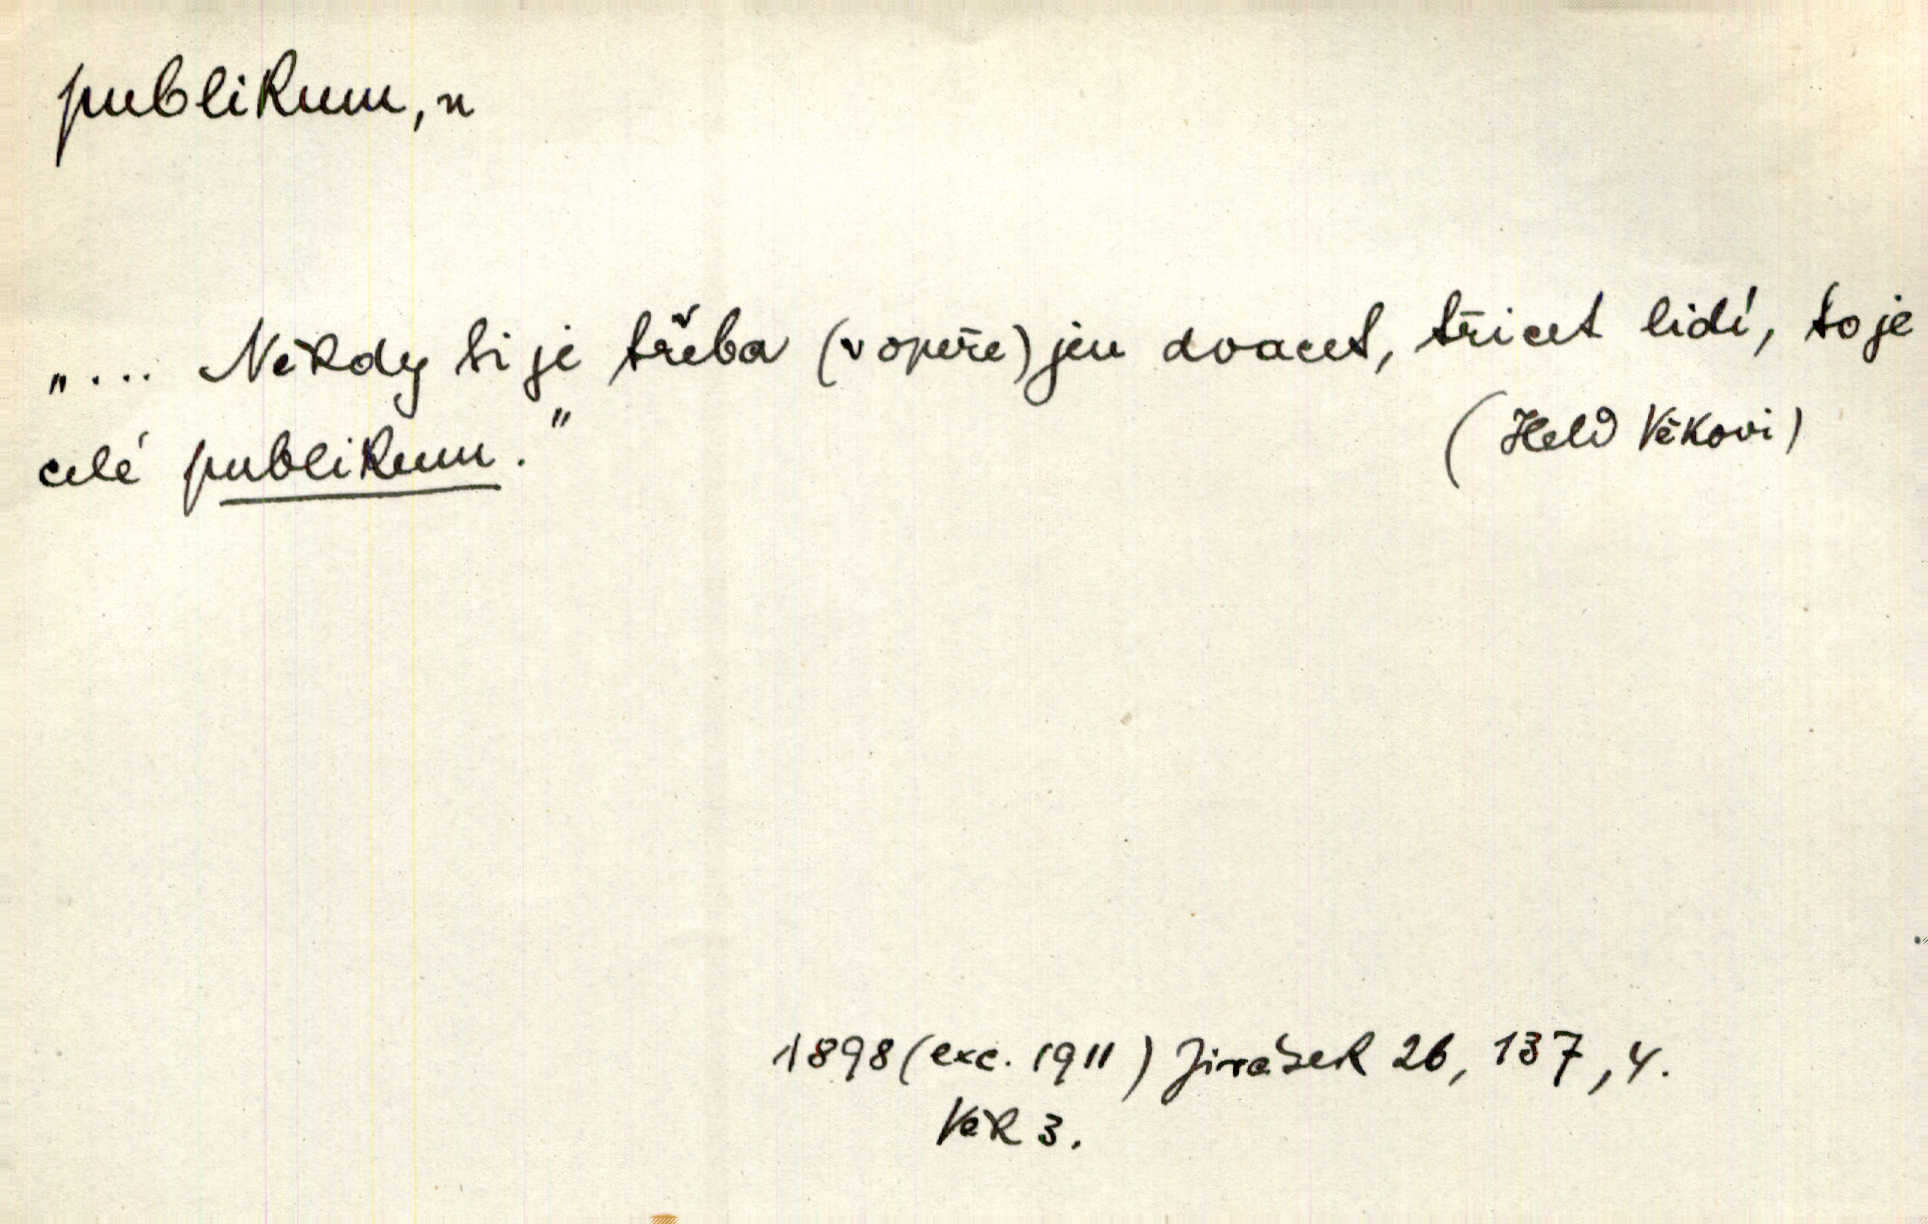 publikum, n
„.... Někdy ti je třeba (v opeře) jen dvacet, třicet lidí, to je
celé publikum.“
(Held Věkovi)
1898 (exc. 1911) Jirásek 26, 137, 4.
Věk 3.